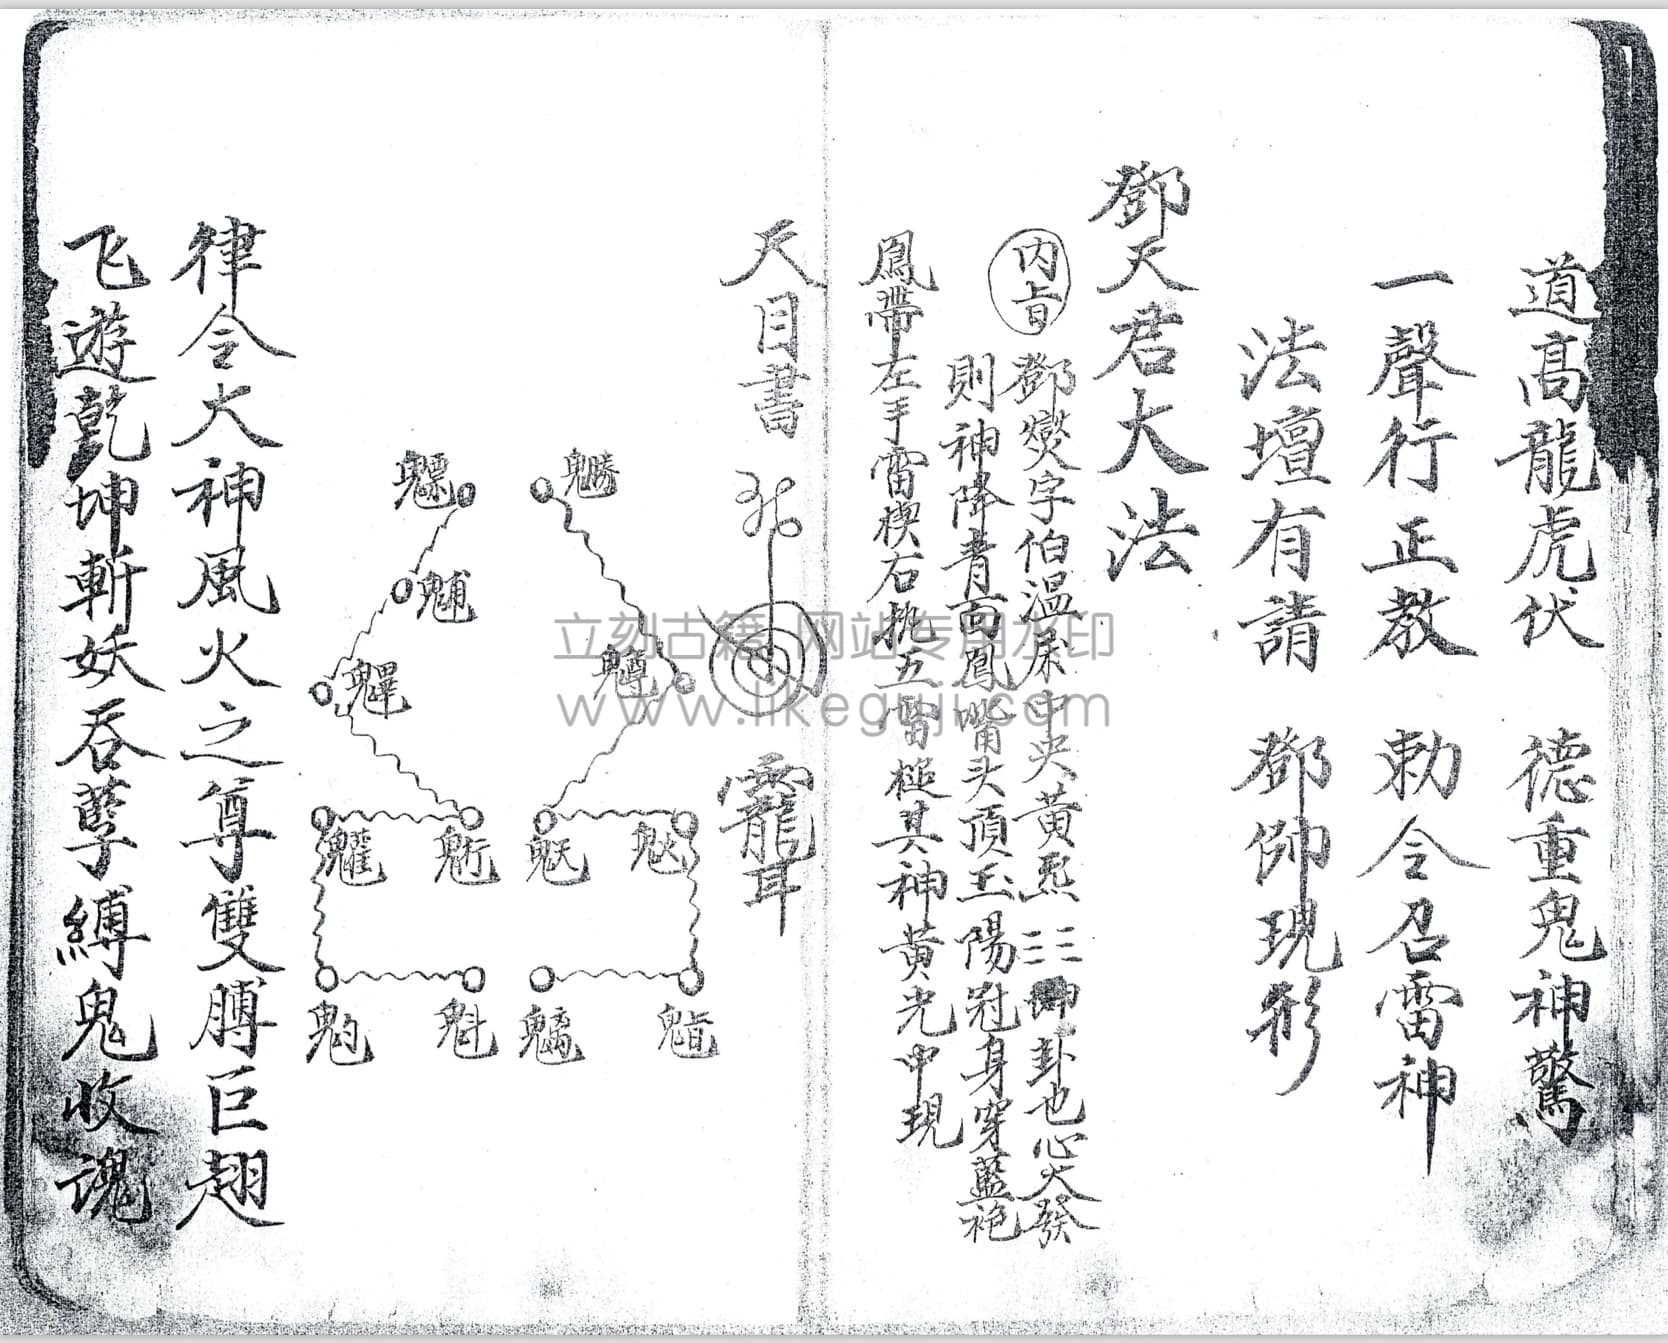 道高龍虎伏　德重鬼神驚
一聲行正教　勅令召雷神
法壇有請　鄧帥現形
鄧天君大法
内旨
鄧燮字伯温屎中央黄炁☷坤卦也心火發
則神降青面鳳嘴头頂玉陽冠身穿藍袍
鳳帶左手雷楔右執五雷槌其神黄光中現
天目書
靇耳
魒
魓
魓
䰢
魁
䰠
律令大神風火之尊雙膊巨翅
飞遊乾坤斬妖吞孽縛鬼收魂
立刻古籍 网站专用水印
www.likeguji.com